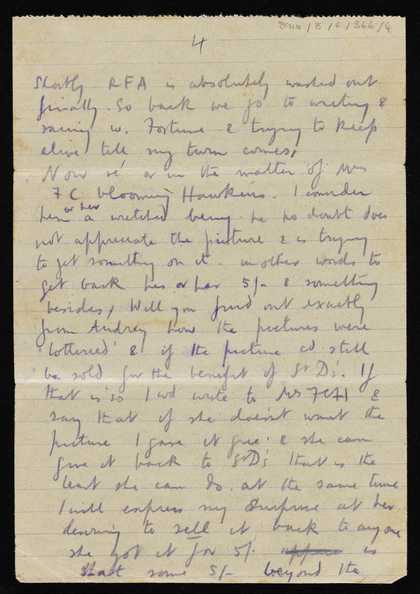 4
Shortly RFA is absolutely washed out
finally. So back we go to waiting &
 w. Fortune & trying to keep
alive till my turn comes.
Now re' or in the matter of Mrs
F C blooming Hawkins. I consider
him or her a wretched being. He no doubt does
not appreciate the picture & is trying
to get something on it. In other words to
get back his or her 5/- & something
besides, Will you find out exactly
from Audrey how the pictures were
'lotteried' & if the picture cd still
be sold for the benefit of St D's. If
that is so I wd write to Mrs FCH &
say that if she doesn't want the
picture I gave it free: & she can
give it back to St D's that is the
least she can do. at the same time
I will express my surprise at her
desiring to sell it back to anyone
she got it for 5/. is
that some 5/- beyond the